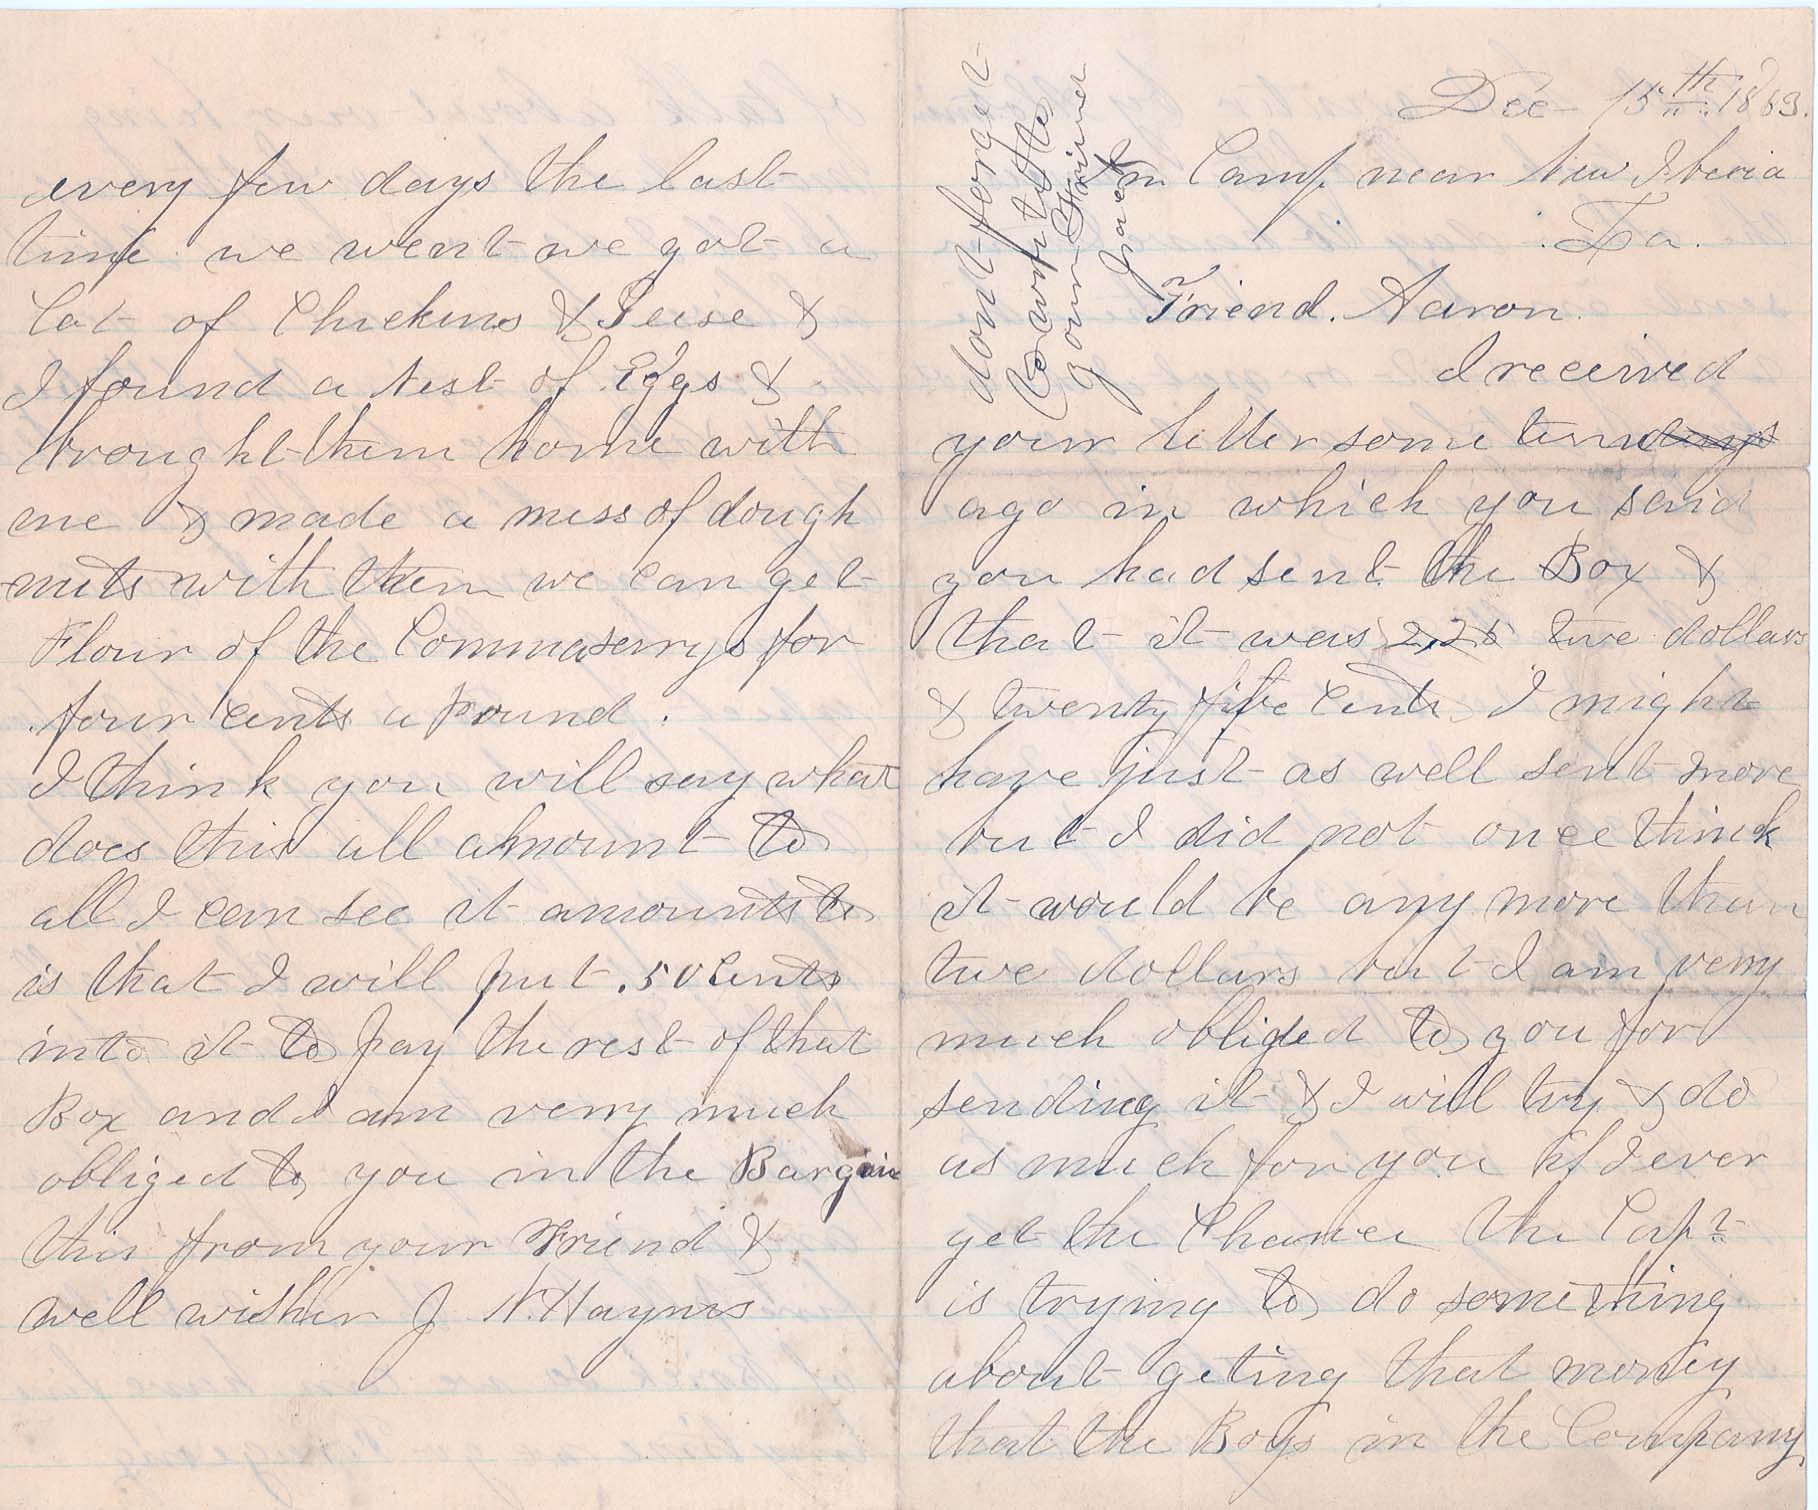 Dec 15th 1863.
In Camp near New Iberia
La.
Friend. Aaron.
I received
your letter some time days
ago in which you said
you had sent the Box &
that it was 2,25 two dollars
& twenty five Cents I might
have just as well sent more
but I did not once think
it would be any more than
two dollars but I am verry
much obliged to you for
sending it & I will try & do
as much for you if I ever
get the Chance The Capt
is trying to do something
about geting that money
that the Boys in the Company
dont forget
to write to
your Friend
Frank
every few days the last
time we went we got a
lot of Chickens & Geese &
I found a Nest of Eggs &
brought them home with
me & made a mess of dough
nuts with them we can get
Flour of the Commaserrys for
four cents a Pound.
I think you will say what
does this all amount to
all I can see it amounts to
is that I will put .50 Cents
into it to pay the rest of that
Box and I am verry much
obliged to you in the Bargain
this from your Friend &
well wisher J N. Haynes